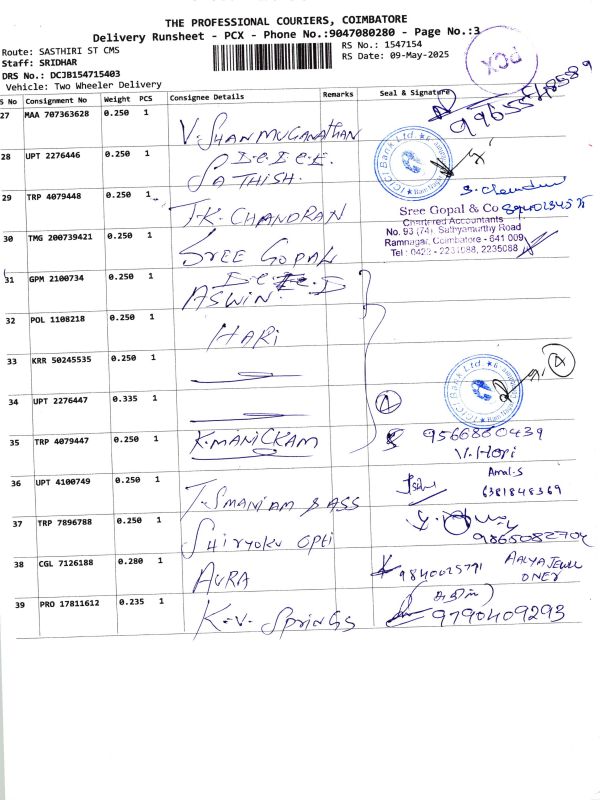 THE PROFESSIONAL COURIERS, COIMBATORE
Delivery Runsheet - PCX - Phone No.:9047080280 - Page No.:3
Route: SASTHIRI ST CMS
RS No.: 1547154
Staff: SRIDHAR
RS Date: 09-May-2025
DRS No.: DCJB154715403
Vehicle: Two Wheeler Delivery
PCX
S No Consignment No Weight PCS Consignee Details Remarks Seal & Signature
27 MAA 707363628 0.250 1 V. SHANMUGANATHAN
28 UPT 2276446 0.250 1 SATHISH. ICICI Bank Ltd.
29 TRP 4079448 0.250 1 T.K. CHANDRAN
30 TMG 200739421 0.250 1 SREE GOPAL
Sree Gopal & Co
Chartered Accountants
No. 93 (74), Sathyamurthy Road
Ramnagar, Coimbatore - 641 009
Tel : 0422 - 2231088, 2235088
31 GPM 2100734 0.250 1 ASWIN
32 POL 1108218 0.250 1 HARI
33 KRR 50245535 0.250 1
34 UPT 2276447 0.335 1 ICICI Bank Ltd.
35 TRP 4079447 0.250 1 K. MANICKAM 9566860439
V. Hari
36 UPT 4100749 0.250 1 T. SMANIAM & ASS Amal.S
6381848369
37 TRP 7896788 0.250 1 Shiryoku opti 9865082704
38 CGL 7126188 0.280 1 AURA 9840025791
39 PRO 17811612 0.235 1 K.V. Springs 9790409293